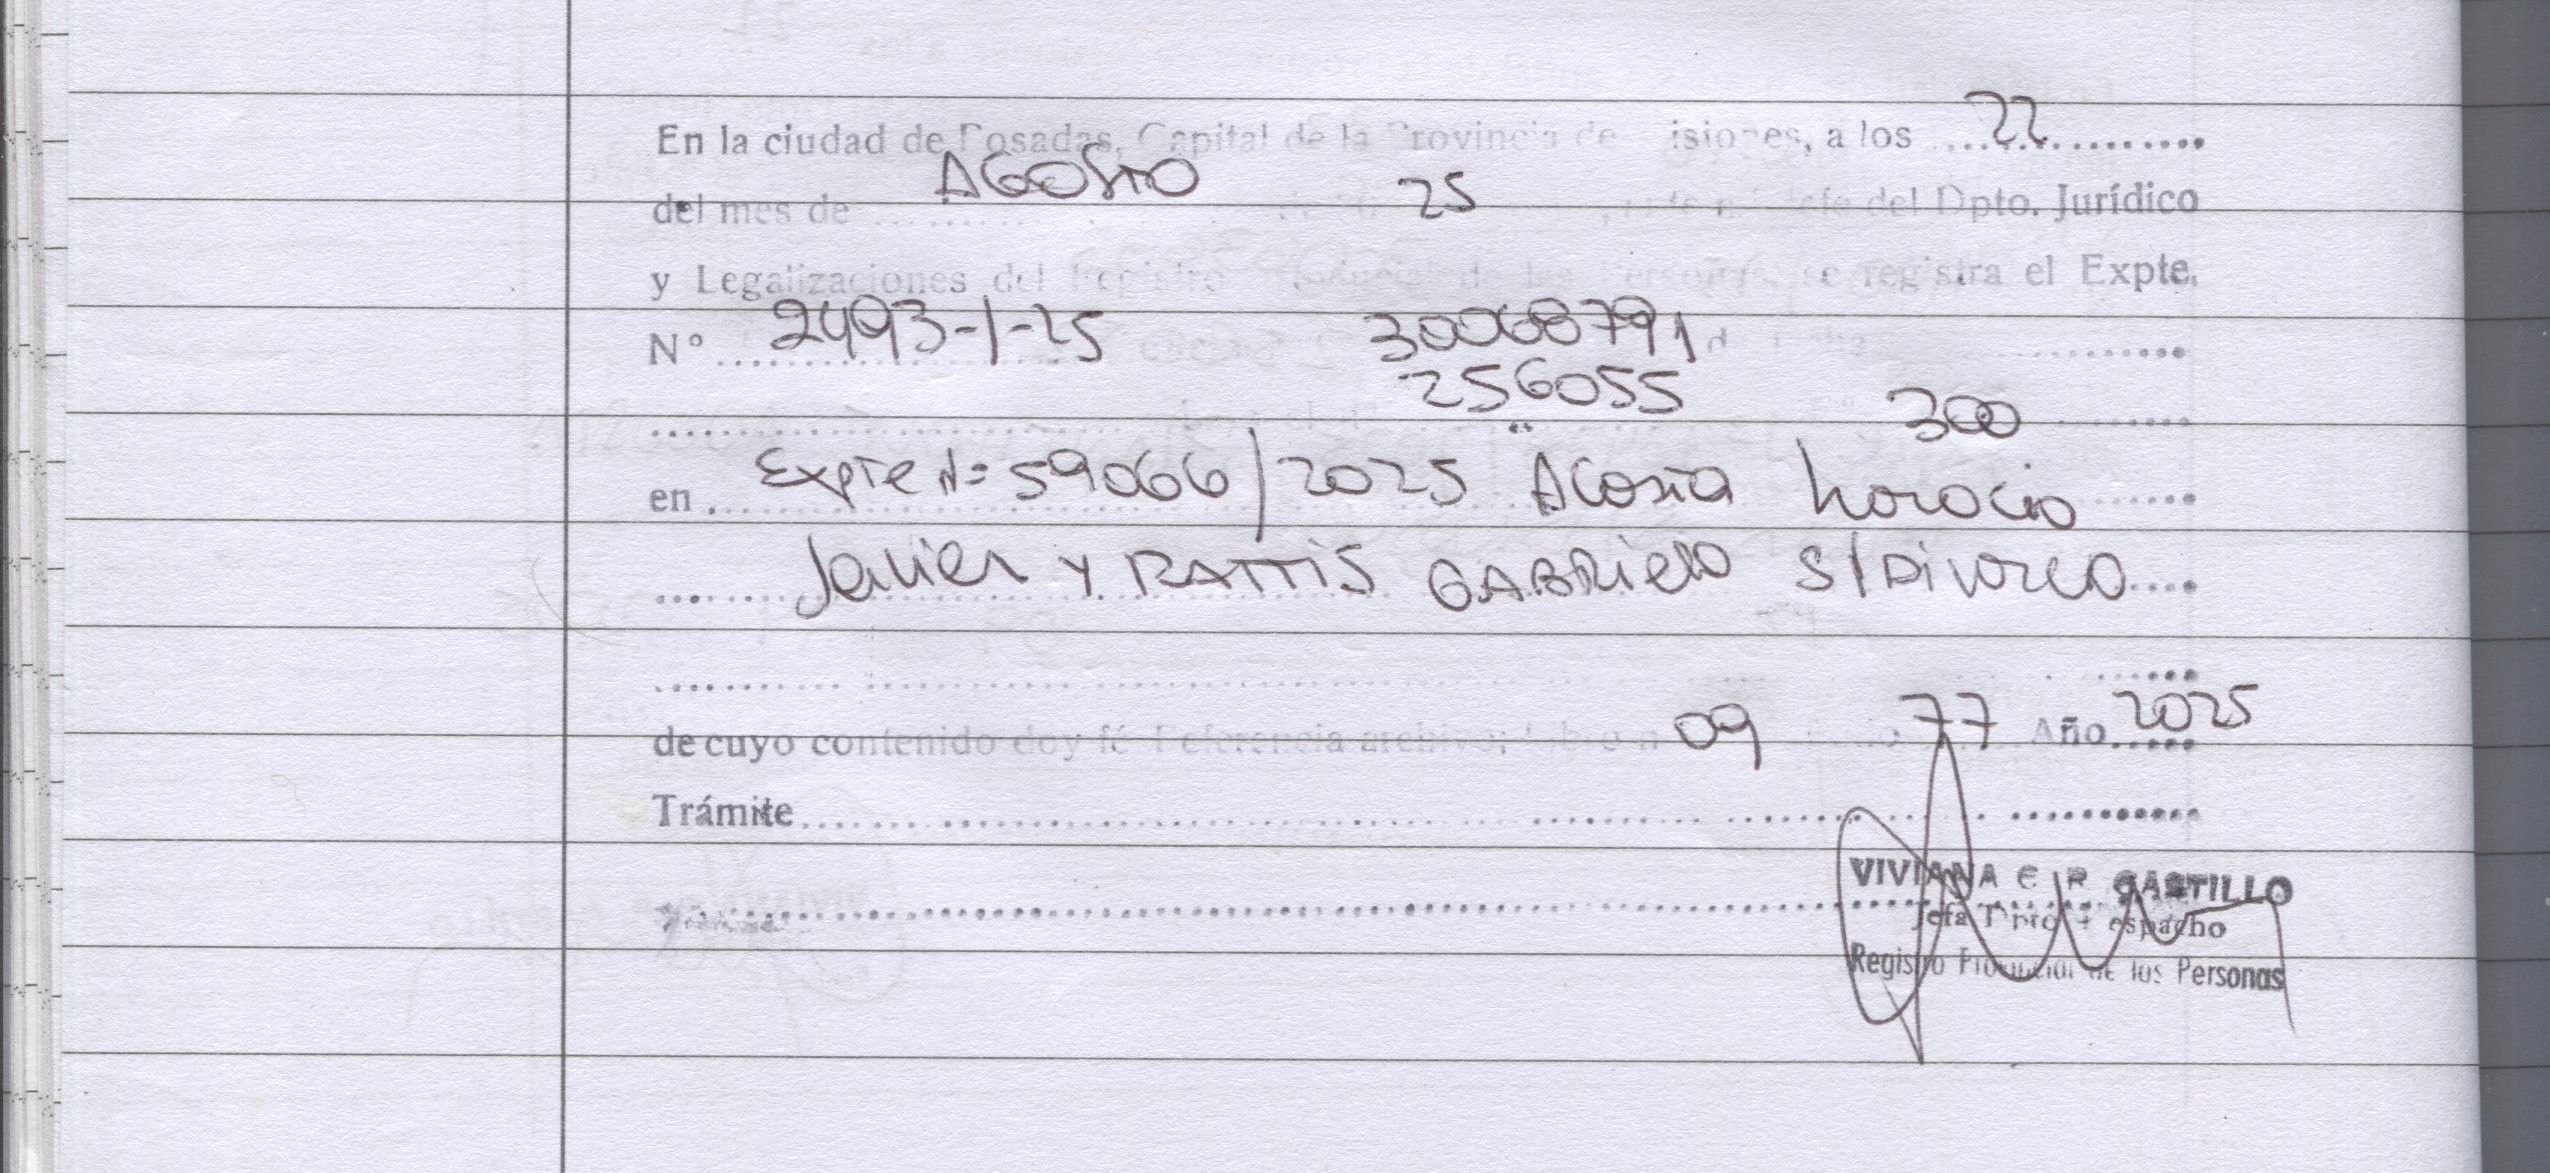 En la ciudad de Posadas, Capital de la Provincia de Misiones, a los 22
del mes de AGOSTO de 20 25, ante mí Jefe del Dpto. Jurídico
y Legalizaciones del Registro Provincial de las Personas, se registra el Expte.
Nº 2493-1-25 30068791
256055 300
en Expte Nº 59066/2025 Acosta horacio
Javier Y RATTIS GABRIELA S/Divorcio
de cuyo contenido doy fé Referencia archivo: Libro n 09 77 Año 2025
Trámite
VIVIANA E. R. CASTILLO
Jefa Dpto Despacho
Registro Provincial de las Personas